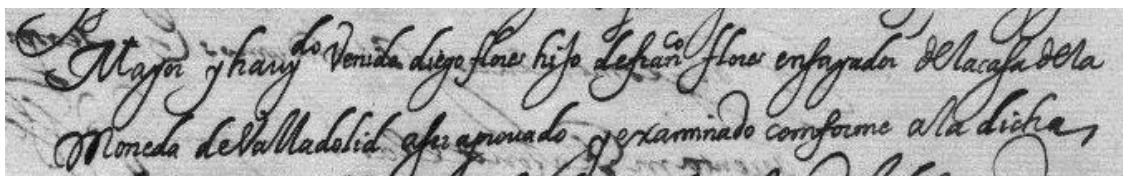 Mayor y hauy.do Venido diego flores hijo de fran.co flores ensayador de la casa de la
Moneda de Valladolid a ser aprouado y examinado comforme a la dicha